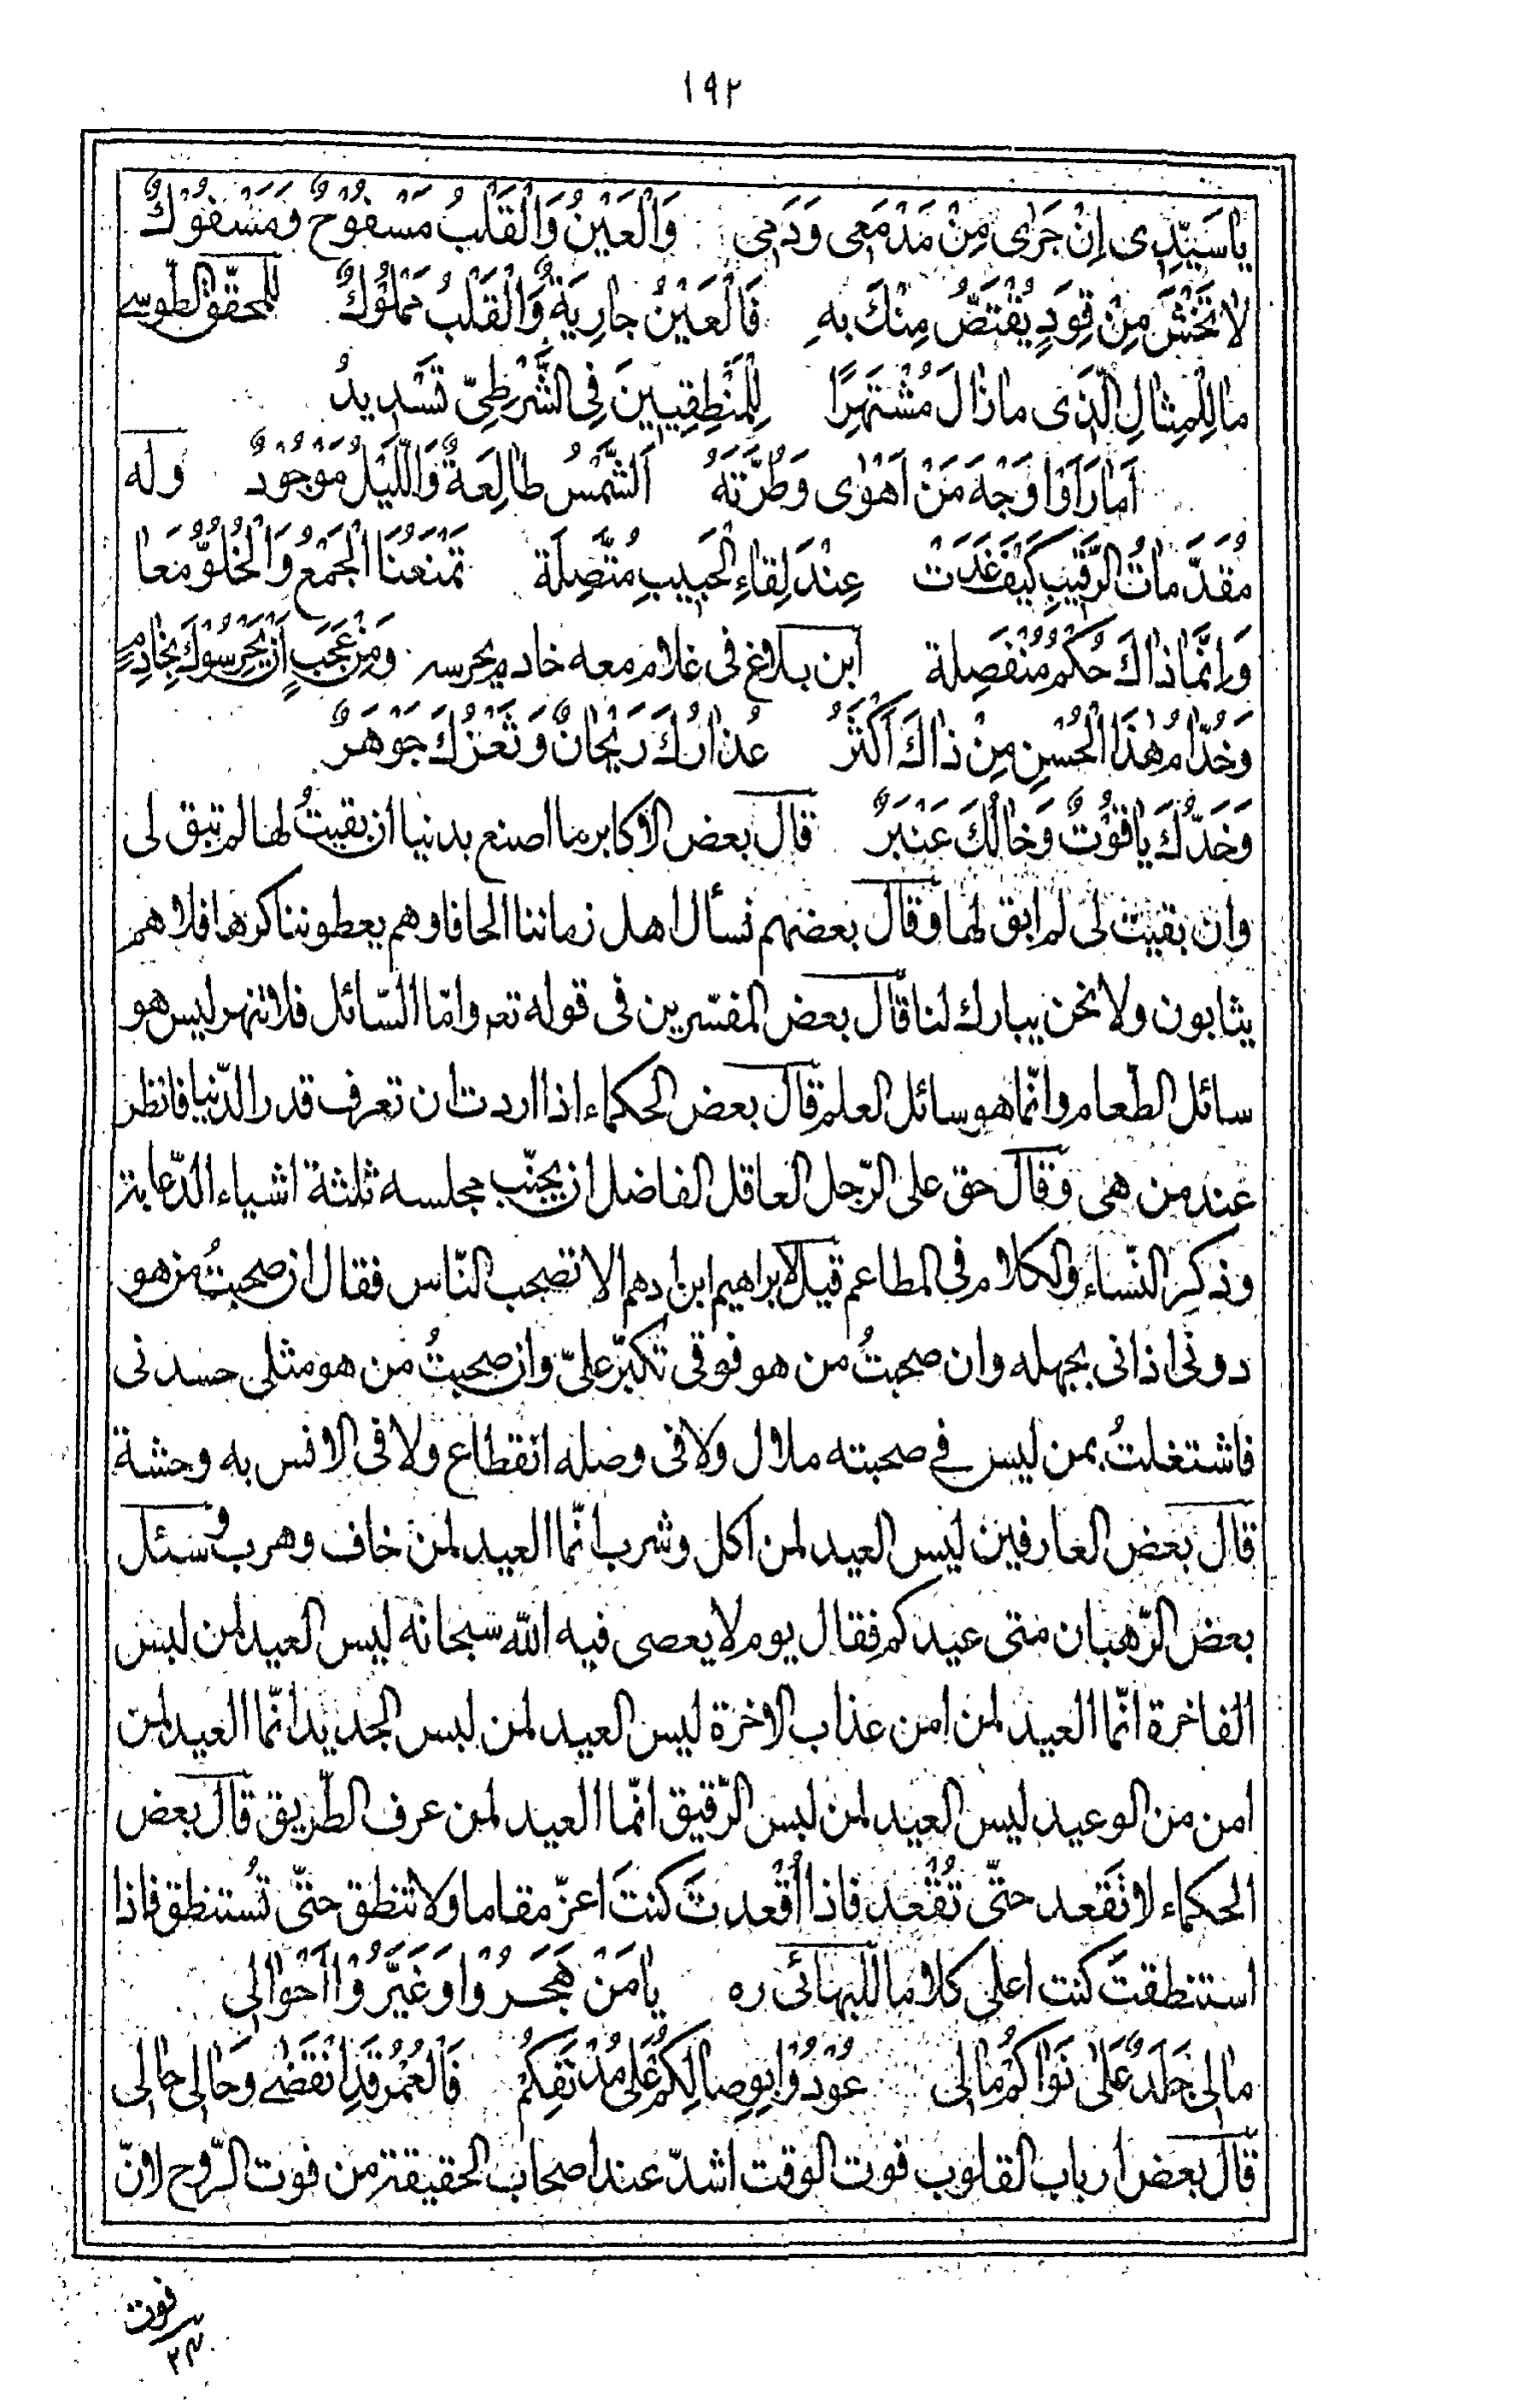 ١٩٢
ياسَيِّدِى اِنْ جَرٰى مِنْ مَدْمَعِى وَدَمِى وَالْعَيْنُ وَالْقَلْبُ مَسْفُوْحٌ وَمَسْفُوْكٌ
لا تَخْشَ مِنْ قِوَدٍ يُقْتَصُّ مِنْكَ بِهِ فَالْعَيْنُ جارِيَةٌ وَالْقَلْبُ مَمْلُوْكٌ للمحقّق الطّوسى
ما لِلْمِثالِ الَّذى ما زالَ مُشْتَهِرًا لِلْمَنْطِقِيِينَ فِى الشَّرْطِىّ تَسْديدُ
اَما رَاَوْا وَجْهَ مَنْ اَهْوٰى وَطُرَّتَهُ اَلشَّمْسُ طالِعَةٌ وَاللَّيْلُ مَوْجُوْدٌ وله
مُقَدَّماتُ الرَّقيبِ كَيْفَ غَدَتْ عِنْدَ لِقاءِ الْحَبيبِ مُتَّصِلَة تَمْنَعُنَا الْجَمْعَ وَالْخُلُوَّ مَعا
وَاِنَّما ذاكَ حُكْمُ مُنْفَصِلَة ابن بلاغ فى غلام معه خادم يحرسه وَمِنْ عَجَبٍ اَنْ يَحْرُسُوْكَ بِخادِمٍ
وَخُدّامُ هٰذَا الْحُسْنِ مِنْ ذاكَ اَكْثَرُ عُذارُكَ رَيْحانٌ وَثَغْرُكَ جَوْهَرٌ
وَخَدُّكَ ياقُوْتٌ وَخالُكَ عَنْبَرٌ قال بعض الاكابر ما اصنع بدنيا ان بقيتُ لها لم تبق لى
وان بقيت لى لم ابق لها وقال بعضهم نسأل اهل زماننا الحافا وهم يعطوننا كرها فلا هم
يثابون ولا نحن يبارك لنا قال بعض المفسّرين فى قوله تعه وامّا السّائل فلا تنهر ليس هو
سائل الطّعام وانّما هو سائل العلم قال بعض الحكماء اذا اردت ان تعرف قدر الدّنيا فانظر
عند من هى وقال حق على الرّجل العاقل الفاضل ان يجنّب مجلسه ثلثة اشياء الدّعابة
وذكر النّساء والكلام فى المطاعم قيل لابراهيم ابن ادهم الا تصحب النّاس فقال ان صحبتُ من هو
دونى اذانى بجهله وان صحبتُ من هو فوقى تكبّر علىّ وان صحبتُ من هو مثلى حسدنى
فاشتغلتُ بمن ليس فى صحبته ملال ولا فى وصله انقطاع ولا فى الانس به وحشة
قال بعض العارفين ليس العيد لمن اكل وشرب انّما العيد لمن خاف وهرب وسئل
بعض الرّهبان متى عيدكم فقال يوم لا يعصى فيه اللّه سبحانه ليس العيد لمن لبس
الفاخرة انّما العيد لمن امن عذاب الاخرة ليس العيد لمن لبس الجديد انّما العيد لمن
امن من الوعيد ليس العيد لمن لبس الرّقيق انّما العيد لمن عرف الطّريق قال بعض
الحكماء لا تَقعد حتّى تُقْعَد فاذا اُقْعدتَ كنتَ اعزّ مقاما ولا تنطق حتّى تُستنطق فاذا
استنطقتَ كنت اعلى كلاما للبهائى ره يا مَنْ هَجَرُوْا وَغَيَّرُوْا اَحْوالى
مالى جَلَدٌ عَلىٰ نَواكُمْ مالى عُوْدُوْا بِوِصالِكُمْ عَلىٰ مُدْنَفِكُمْ فَالْعُمْرُ قَدِ انْقَضٰى وَحالى حالى
قال بعض ارباب القلوب فوت الوقت اشدّ عند اصحاب الحقيقة من فوت الرّوح لانّ
فوت